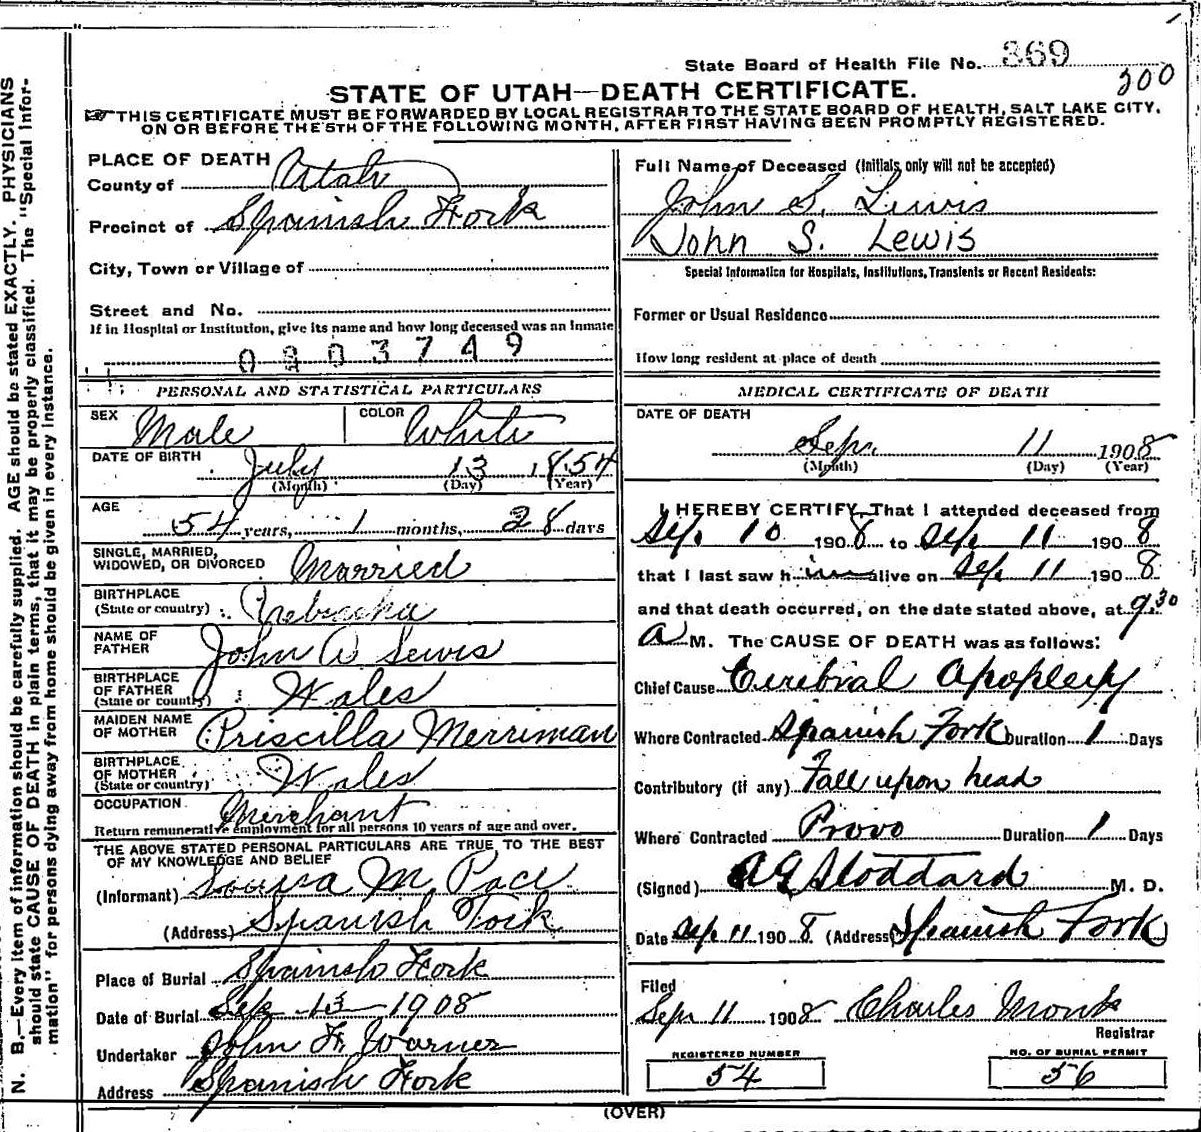 State Board of Health File No. 369
300
STATE OF UTAH—DEATH CERTIFICATE.
THIS CERTIFICATE MUST BE FORWARDED BY LOCAL REGISTRAR TO THE STATE BOARD OF HEALTH, SALT LAKE CITY,
ON OR BEFORE THE 5TH OF THE FOLLOWING MONTH, AFTER FIRST HAVING BEEN PROMPTLY REGISTERED.
N. B.—Every item of information should be carefully supplied. AGE should be stated EXACTLY. PHYSICIANS
should state CAUSE OF DEATH in plain terms, that it may be properly classified. The "Special Infor-
mation" for persons dying away from home should be given in every instance.
PLACE OF DEATH
County of Utah
Precinct of Spanish Fork
City, Town or Village of
Street and No.
If in Hospital or Institution, give its name and how long deceased was an Inmate
0 3 7 4 9
PERSONAL AND STATISTICAL PARTICULARS
SEX Male COLOR White
DATE OF BIRTH July 13 1854
(Month) (Day) (Year)
AGE
54 years, 1 months, 28 days
SINGLE, MARRIED,
WIDOWED, OR DIVORCED Married
BIRTHPLACE
(State or country) Nebraska
NAME OF
FATHER John A Lewis
BIRTHPLACE
OF FATHER
(State or country) Wales
MAIDEN NAME
OF MOTHER Priscilla Merriman
BIRTHPLACE
OF MOTHER
(State or country) Wales
OCCUPATION Merchant
Return remunerative employment for all persons 10 years of age and over.
THE ABOVE STATED PERSONAL PARTICULARS ARE TRUE TO THE BEST
OF MY KNOWLEDGE AND BELIEF
(Informant) Louisa M Pace
(Address) Spanish Fork
Place of Burial Spanish Fork
Date of Burial Sep 13 1908
Undertaker John F. Warner
Address Spanish Fork
Full Name of Deceased (Initials only will not be accepted)
John S. Lewis
John S. Lewis
Special Information for Hospitals, Institutions, Transients or Recent Residents:
Former or Usual Residence
How long resident at place of death
MEDICAL CERTIFICATE OF DEATH
DATE OF DEATH
Sep. 11 1908
(Month) (Day) (Year)
I HEREBY CERTIFY, That I attended deceased from
Sep. 10 1908 to Sep. 11 1908
that I last saw him alive on Sep. 11 1908
and that death occurred, on the date stated above, at 9.30
A M. The CAUSE OF DEATH was as follows:
Chief Cause Cerebral Apoplexy
Where Contracted Spanish Fork Duration 1 Days
Contributory (if any) Fall upon head
Where Contracted Provo Duration 1 Days
(Signed) A G Stoddard M. D.
Date Sep. 11 1908 (Address) Spanish Fork
Filed
Sep 11 1908 Charles Monk
Registrar
REGISTERED NUMBER
54
NO. OF BURIAL PERMIT
56
(OVER)